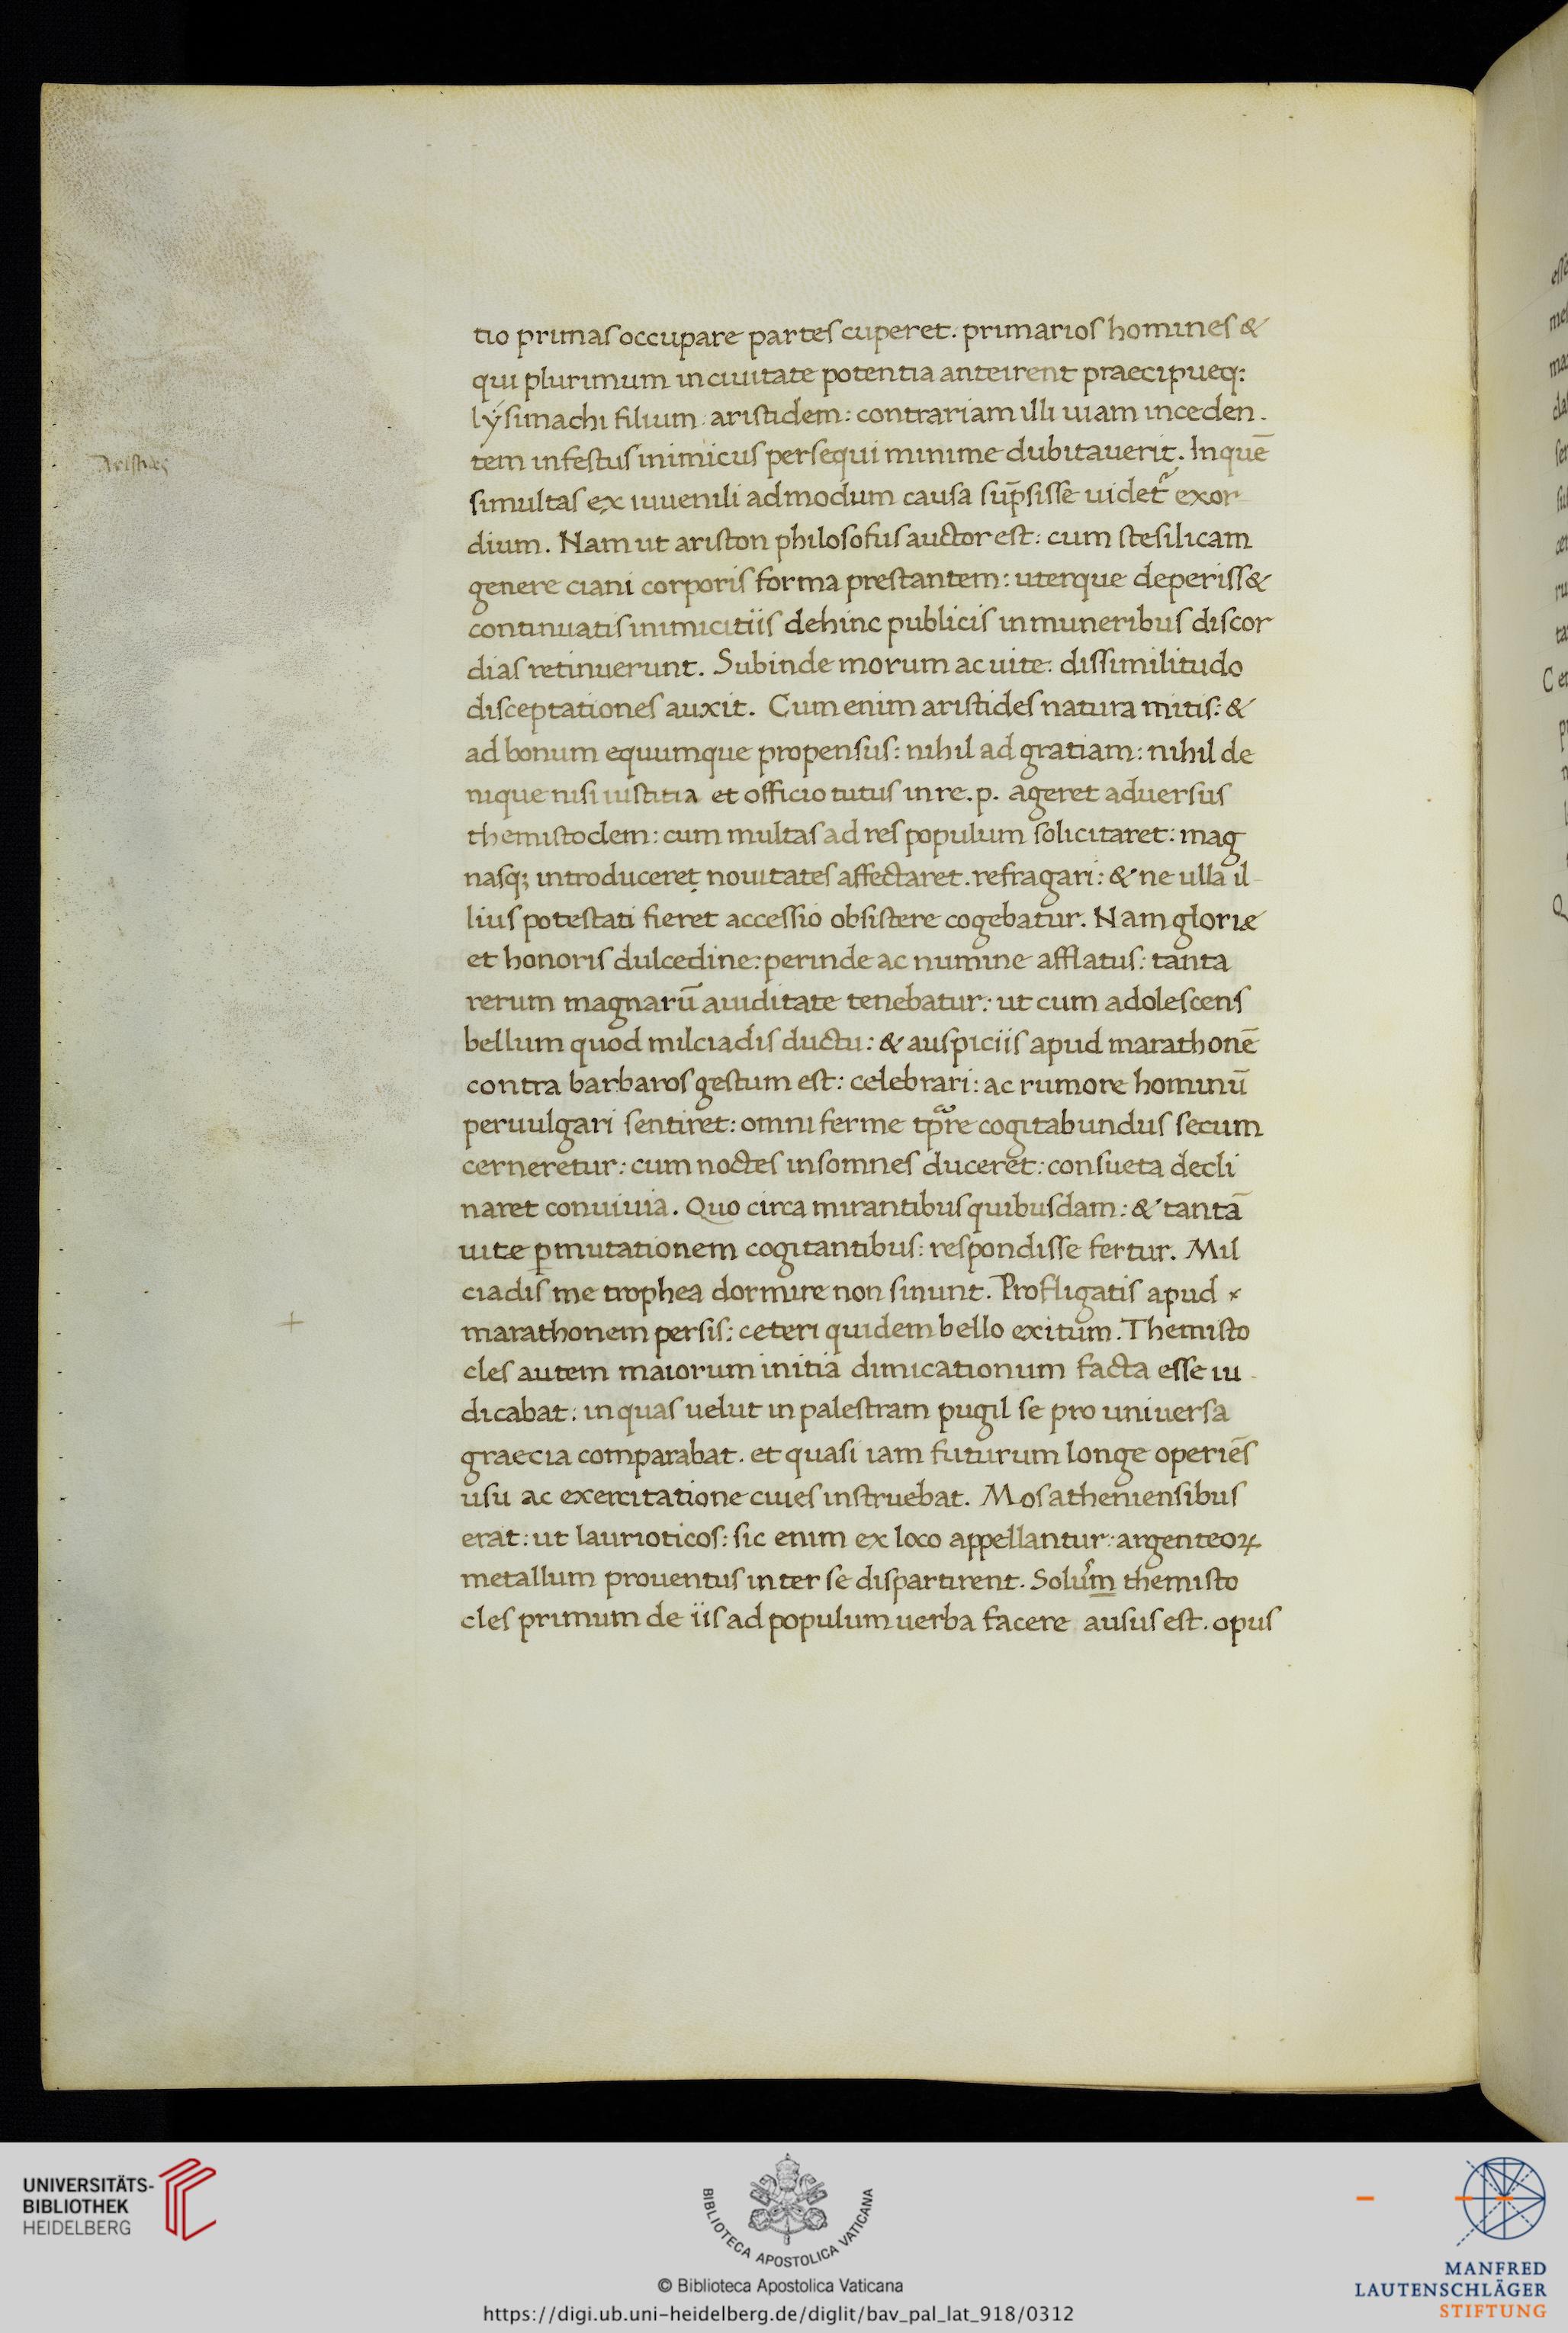 tio primas occupare partes cuperet. primarios homines &
qui plurimum in ciuitate potentia anteirent praecipueq:
lẏsimachi filium: aristidem: contrariam illi uiam inceden.
tem infestus inimicus persequi minime dubitauerit. In quē
simultas ex iuuenili admodum causa sūpsisse uidet᷑ exor
dium. Nam ut ariston philosofus auctor est: cum stesilicam
genere ciani corporis forma prestantem: uterque deperiss&
continuatis inimicitiis dehinc publicis in muneribus discor
dias retinuerunt. Subinde morum ac uite: dissimilitudo
disceptationes auxit. Cum enim aristides natura mitis: &
ad bonum equumque propensus: nihil ad gratiam: nihil de
nique nisi iustitia et officio tutus in re. p. ageret aduersus
themistoclem: cum multas ad res populum solicitaret: mag
nasq; introduceret nouitates affectaret. refragari: & ne ulla il-
lius potestati fieret accessio obsistere cogebatur. Nam gloriæ
et honoris dulcedine: perinde ac numine afflatus: tanta
rerum magnarū auiditate tenebatur: ut cum adolescens
bellum quod milciadis ductu: & auspiciis apud marathonē
contra barbaros gestum est: celebrari: ac rumore hominū
peruulgari sentiret: omni ferme tp̄re cogitabundus secum
cerneretur: cum noctes insomnes duceret: consueta decli
naret conuiuia. Quo circa mirantibus quibusdam: & tantā
uite ꝑmutationem cogitantibus: respondisse fertur. Mil
ciadis me trophea dormire non sinunt. Profligatis apud
marathonem persis: ceteri quidem bello exitum. Themisto
cles autem maiorum initia dimicationum facta esse iu-
dicabat: in quas uelut in palestram pugil se pro uniuersa
graecia comparabat. et quasi iam futurum longe operiēs
usu ac exercitatione ciues instruebat. Mos atheniensibus
erat: ut laurioticos: sic enim ex loco appellantur: argenteoꝝ
metallum prouentus inter se dispartirent. Solum themisto
cles primum de iis ad populum uerba facere ausus est. opus
UNIVERSITÄTS-
BIBLIOTHEK
HEIDELBERG
BIBLIOTECA APOSTOLICA VATICANA
© Biblioteca Apostolica Vaticana
https://digi.ub.uni-heidelberg.de/diglit/bav_pal_lat_918/0312
MANFRED
LAUTENSCHLÄGER
STIFTUNG